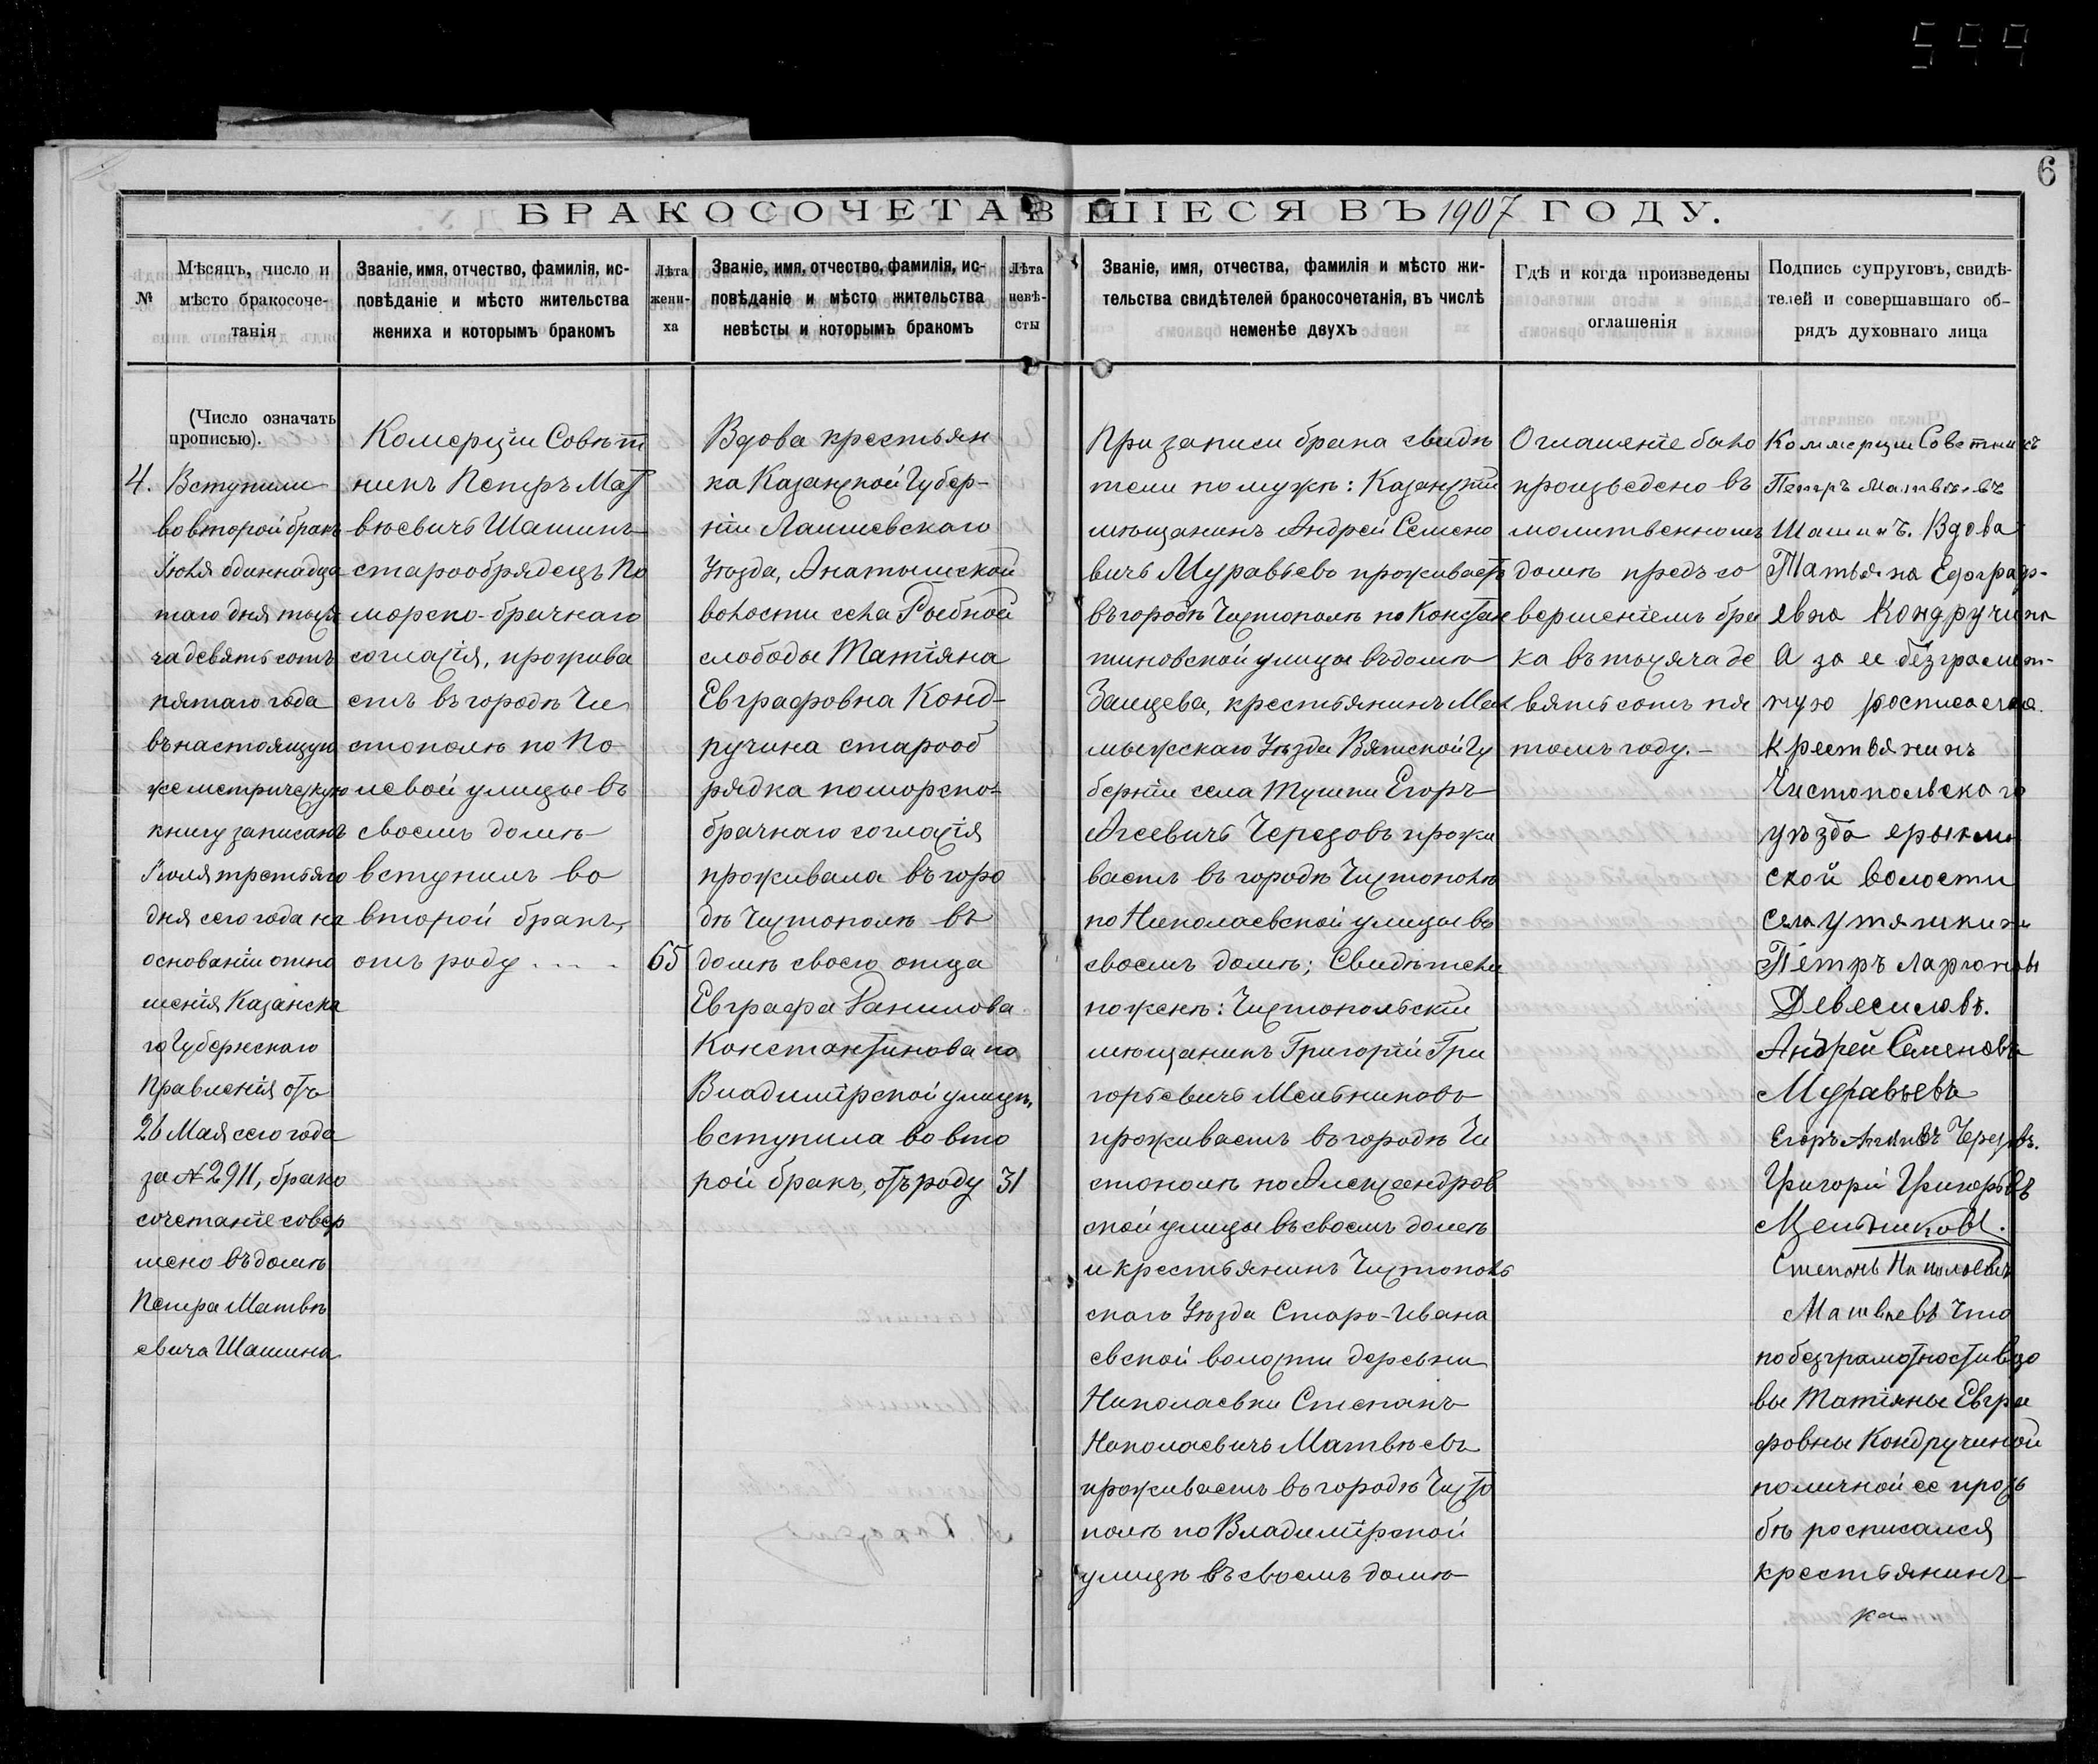 599
6
БРАКОСОЧЕТАВШІЕСЯ ВЪ 1907 ГОДУ.
№
Мѣсяцъ, число и
мѣсто бракосоче-
танія
Званіе, имя, отчество, фамилія, ис-
повѣданіе и мѣсто жительства
жениха и которымъ бракомъ
Лѣта
жени-
ха
Званіе, имя, отчество, фамилія, ис-
повѣданіе и мѣсто жительства
невѣсты и которымъ бракомъ
Лѣта
невѣ-
сты
Званіе, имя, отчества, фамилія и мѣсто жи-
тельства свидѣтелей бракосочетанія, въ числѣ
неменѣе двухъ
Гдѣ и когда произведены
оглашенія
Подпись супруговъ, свидѣ-
телей и совершавшаго об-
рядъ духовнаго лица
(Число означать
прописью).
4. Вступили
во второй бракъ
Іюля одиннадца
таго дня тыся
ча девятьсотъ
пятаго года
въ настоящую
же метрическую
книгу записанъ
Іюля третьяго
дня сего года на
основаніи отно
шенія Казанска
го Губернскаго
Правленія отъ
26 Мая сего года
за № 2911, брако
сочетаніе совер
шено въ домѣ
Петра Матвѣ
евича Шашина
Комерціи Совѣт
никъ Петръ Мат
вѣевичъ Шашинъ
старообрядецъ По
морско-брачнаго
согласія, прожива
етъ въ городѣ Чи
стополѣ по По
левой улицѣ въ
своемъ домѣ
вступилъ во
второй бракъ,
отъ роду . . . .
65
Вдова крестьян
ка Казанской Губер-
ніи Лаишевскаго
Уѣзда, Анатышской
волости села Рыбной
слободы Татіяна
Евграфовна Конд-
ручина старооб
рядка поморско-
брачнаго согласія
проживала въ горо
дѣ Чистополѣ въ
домѣ своего отца
Евграфа Данилова
Константинова по
Владимірской улицѣ,
вступила во вто
рой бракъ, отъ роду
31
При записи брака свидѣ
тели по мужѣ: Казанскій
мѣщанинъ Андрей Семено
вичъ Муравьевъ проживаетъ
въ городѣ Чистополѣ по Констан
тиновской улицѣ въ домѣ
Защева, крестьянинъ Мал
мыжскаго Уѣзда Вятской Гу
берніи села Тушки Егоръ
Агеевичъ Черезовъ прожи
ваетъ въ городѣ Чистополѣ
по Николаевской улицѣ въ
своемъ домѣ; Свидѣтели
по женѣ: Чистопольскій
мѣщанинъ Григорій Гри
горьевичъ Мельниковъ
проживаетъ въ городѣ Чи
стополѣ по Александров
ской улицѣ въ своемъ домѣ
и крестьянинъ Чистополь
скаго Уѣзда Старо-Ивана
евской волости деревни
Николаевки Степанъ
Николаевичъ Матвѣевъ
проживаетъ въ городѣ Чисто
полѣ по Владимірской
улицѣ въ своемъ домѣ
Оглашеніе было
произведено въ
молитвенномъ
домѣ предъ со
вершеніемъ бра
ка въ тысяча де
вятьсотъ пя
томъ году. -
Коммерции Советникъ
Петръ Матвѣевъ
Шашинъ. Вдова
Татьяна Едограф-
евна Кондручина
А за ее безграмот-
ную росписался
крестьянинъ
Чистопольскаго
уѣзда
ской волости
села Утяшкина
Петръ Ларионовъ
Девесиловъ.
Андрей Семеновъ
Муравьевъ
Егоръ Агѣевъ Черезовъ.
Григорій Григорьевъ
Мельниковъ.
Степанъ Николаевичъ
Матвѣевъ Что
по безграмотности вдо
вы Татіяны Евгра
фовны Кондручиной
по личной ее прозь
бѣ росписался
крестьянинъ